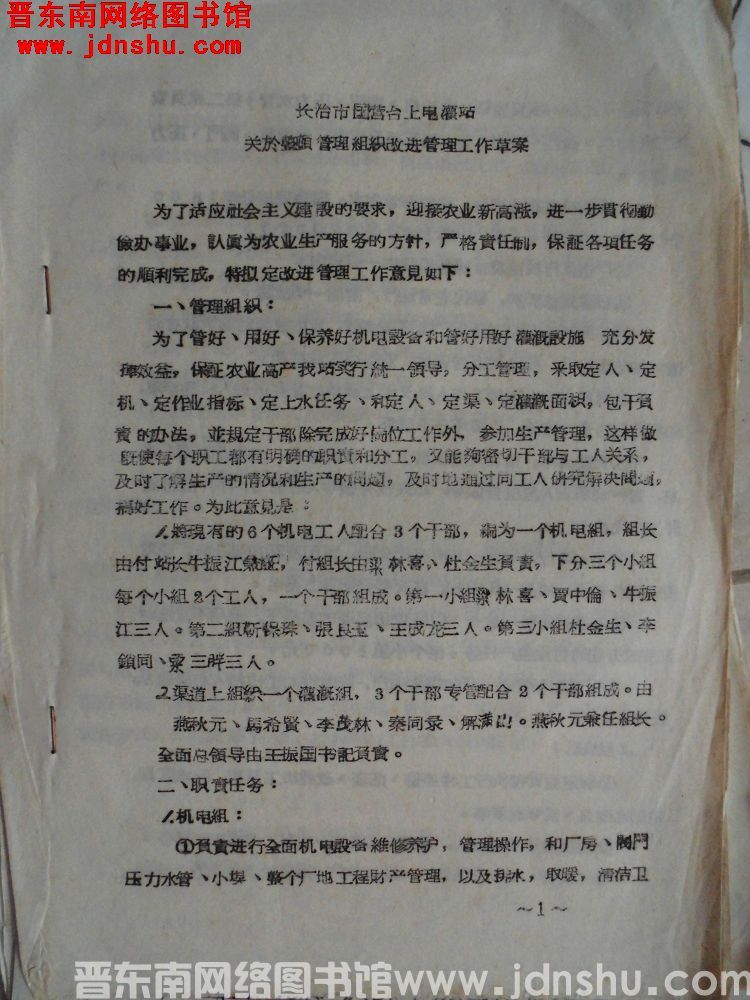 晋东南网络图书馆
www.jdnshu.com
长治市国营台上电灌站
关於整顿管理組织改进管理工作草案
为了适应社会主义建設的要求，迎接农业新高涨，进一步貫彻勤
儉办事业，認眞为农业生产服务的方針，严格責任制，保証各項任务
的順利完成，特拟定改进管理工作意見如下：
一、管理組織：
为了管好、用好、保养好机电設备和管好用好灌溉設施　充分发
揮效益，保証农业高产我站实行統一領导，分工管理，采取定人、定
机、定作业指标、定上水任务、和定人、定渠、定灌溉面积，包干負
責的办法，並規定干部除完成好崗位工作外，参加生产管理，这样做
既使每个职工都有明确的职責和分工，又能夠密切干部与工人关系，
及时了解生产的情况和生产的問題，及时地通过同工人研究解决問題，
搞好工作。为此意見是：
1.將現有的6个机电工人配合3个干部，編为一个机电組，組长
由付站长牛振江兼任，付組长由梁林喜、杜金生負責，下分三个小組
每个小組2个工人，一个干部組成。第一小組梁林喜、賈中倫、牛振
江三人。第二組靳保珠、張良玉、王成龙三人。第三小組杜金生、李
鎖同、梁三胖三人。
2.渠道上組織一个灌溉組，3个干部专管配合2个干部組成。由
燕秋元、馬希賢、李茂林、秦同录、解滿出。燕秋元兼任組长。
全面总領导由王振国书記負責。
二、职責任务：
1.机电組：
①負責进行全面机电設备維修养护，管理操作，和厂房、閘門
压力水管、小垻、整个厂地工程財产管理，以及排水，取暖，清洁卫
～1～
晋东南网络图书馆www.jdnshu.com